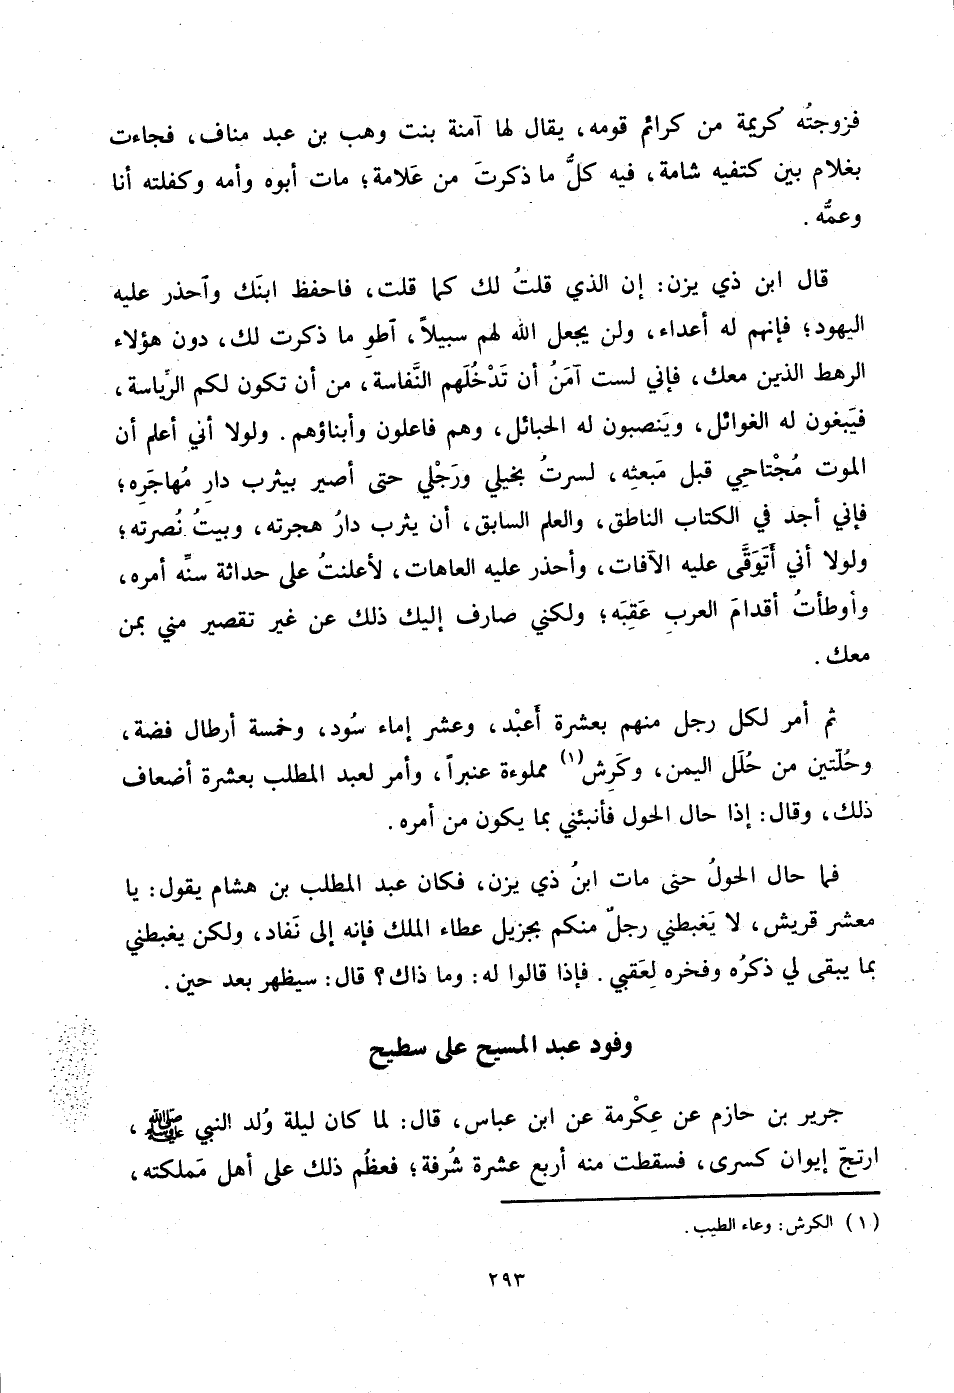 فزوجتُه كريمة من كرائم قومه، يقال لها آمنة بنت وهب بن عبد مناف، فجاءت
بغلام بين كتفيه شامة، فيه كلُّ ما ذكرتَ من عَلامة؛ مات أبوه وأمه وكفلته أنا
وعمُّه.
قال ابن ذي يزن: إن الذي قلتُ لك كما قلت، فاحفظ ابنَك وٱحذر عليه
اليهود؛ فإنهم له أعداء، ولن يجعل الله لهم سبيلاً، ٱطوِ ما ذكرت لك، دون هؤلاء
الرهط الذين معك، فإني لست آمَنُ أن تَدْخُلَهم النَّفاسة، من أن تكون لكم الرِّياسة،
فيَبغون له الغوائل، ويَنصبون له الحبائل، وهم فاعلون وأبناؤهم. ولولا أني أعلم أن
الموت مُجْتاحِي قبل مَبعثِه، لسرتُ بخيلي ورَجْلي حتى أصير بيثرب دارِ مُهاجَرِه؛
فإني أجد في الكتاب الناطق، والعلم السابق، أن يثرب دارُ هجرته، وبيتُ نُصرته؛
ولولا أني أَتَوَقَّى عليه الآفات، وأحذر عليه العاهات، لأعلنتُ على حداثة سنِّه أمره،
وأوطأتُ أقدامَ العربِ عَقِبَه؛ ولكني صارف إليك ذلك عن غير تقصير مني بمن
معك.
ثم أمر لكل رجل منهم بعشرة أَعبْد، وعشر إماء سُود، وخمسة أرطال فضة،
وحُلّتين من حُلَل اليمن، وكَرِش(١) مملوءة عنبراً، وأمر لعبد المطلب بعشرة أضعاف
ذلك، وقال: إذا حال الحول فأنبئني بما يكون من أمره.
فما حال الحولُ حتى مات ابنُ ذي يزن، فكان عبد المطلب بن هشام يقول: يا
معشر قريش، لا يَغبطني رجلٌ منكم بجزيل عطاء الملك فإنه إلى نَفاد، ولكن يغبطني
بما يبقى لي ذكرُه وفخره لِعَقبي. فإذا قالوا له: وما ذاك؟ قال: سيظهر بعد حين.
وفود عبد المسيح على سطيح
جرير بن حازم عن عِكْرمة عن ابن عباس، قال: لما كان ليلة وُلد النبي ﷺ،
ارتجّ إيوان كسرى، فسقطت منه أربع عشرة شُرفة؛ فعظُم ذلك على أهل مَملكته،
(١) الكرش: وعاء الطيب.
٢٩٣